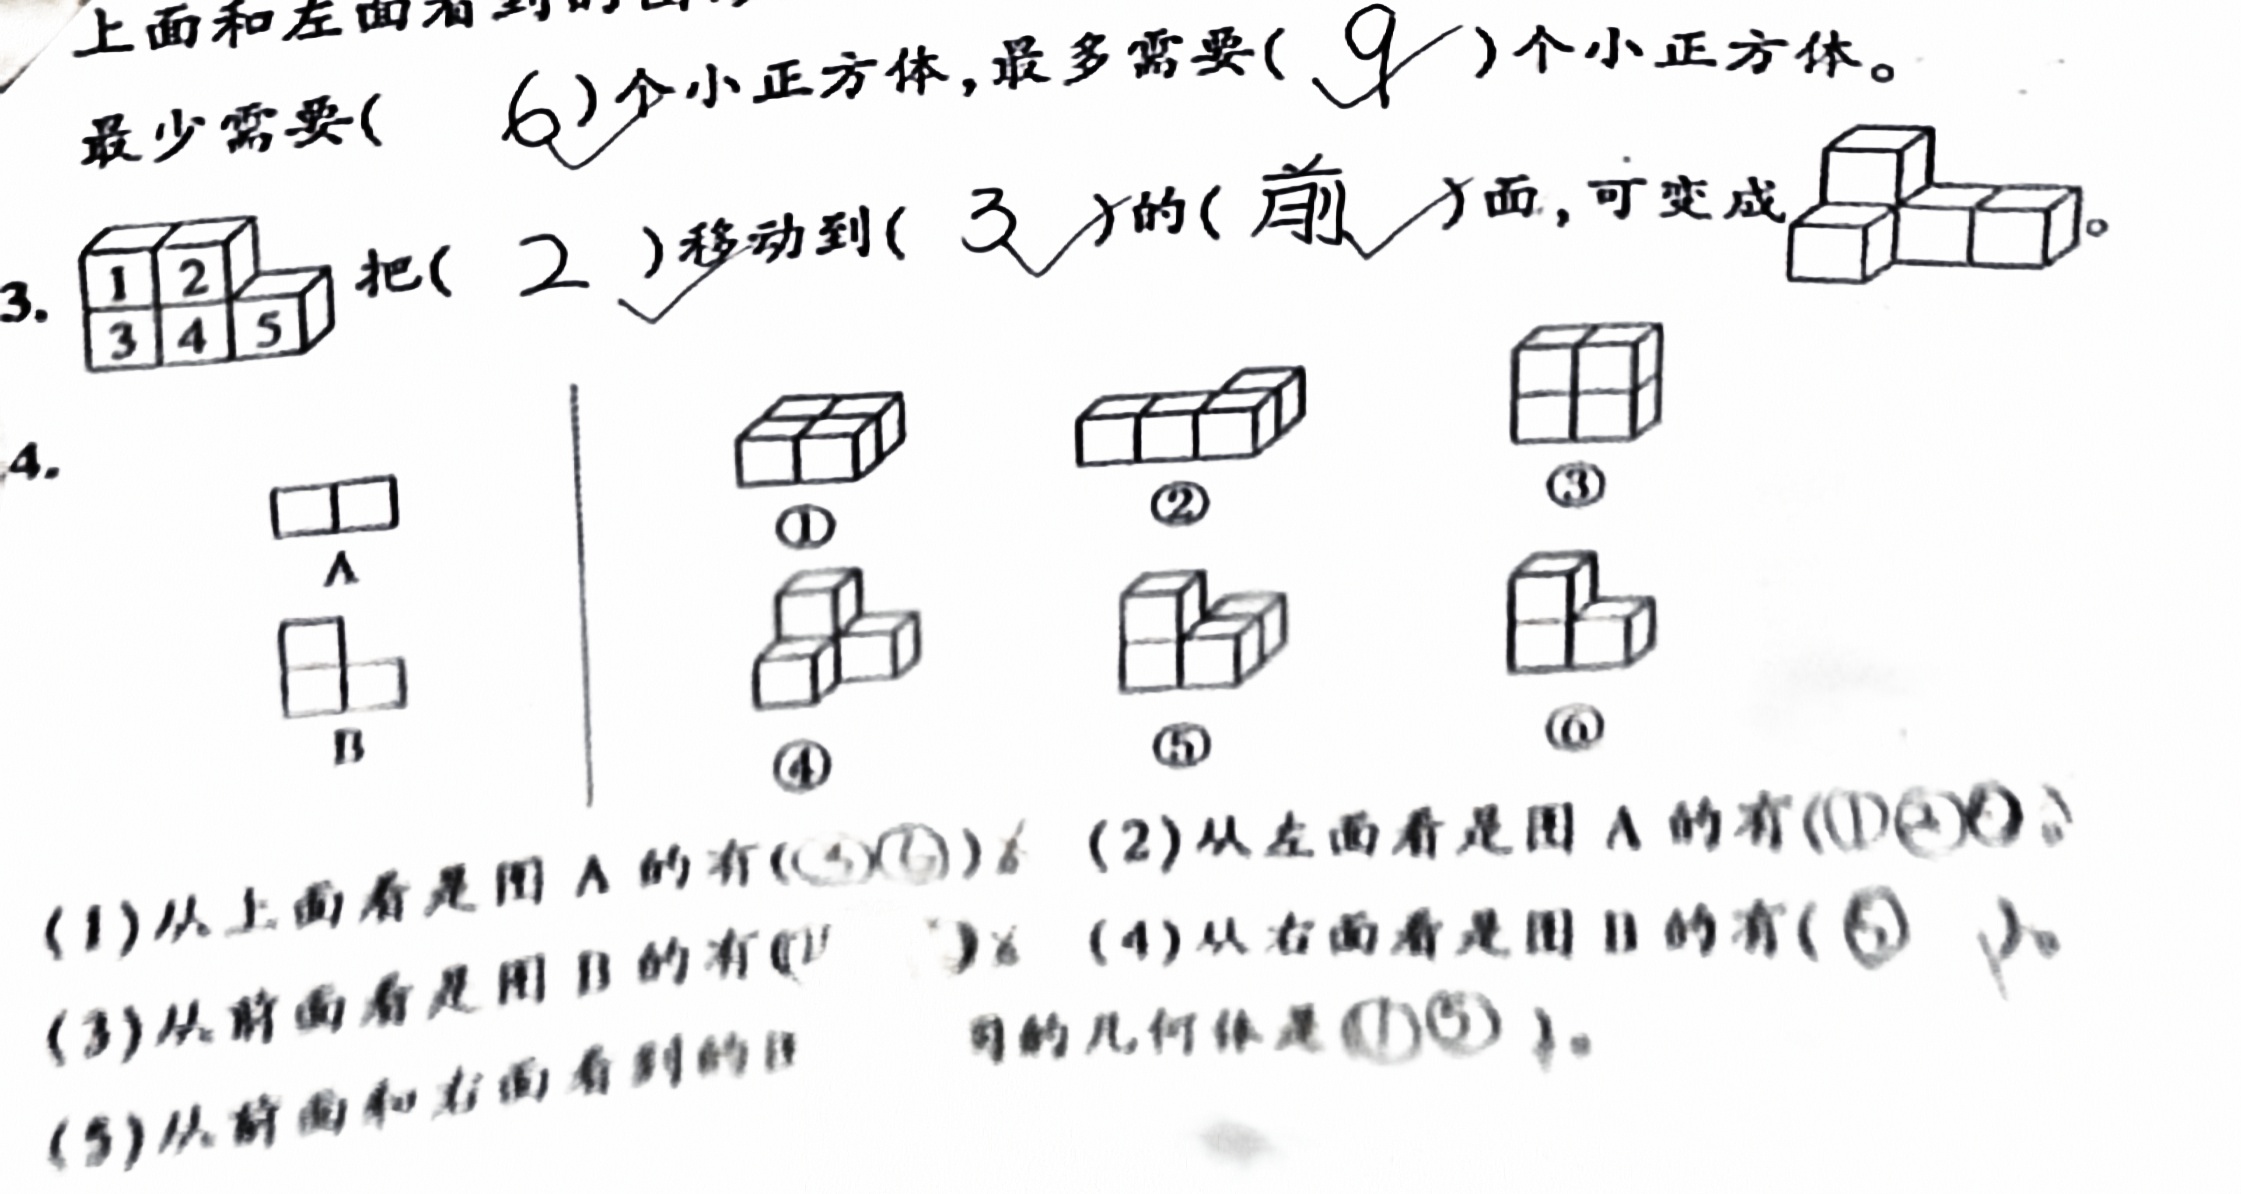 上面和左面看到的
最少需要( 6 )个小正方体,最多需要( 9 )个小正方体。
3. 1 2 3 4 5 把( 2 )移动到( 3 )的( 前 )面,可变成 。
4.
A
① ② ③
B
④ ⑤ ⑥
(1)从上面看是图 A 的有( ) (2)从左面看是图 A 的有(①
(3)从前面看是图 B 的有( ) (4)从右面看是图 B 的有(⑤ )。
(5)从前面和右面看到的 的几何体是(①⑤ )。